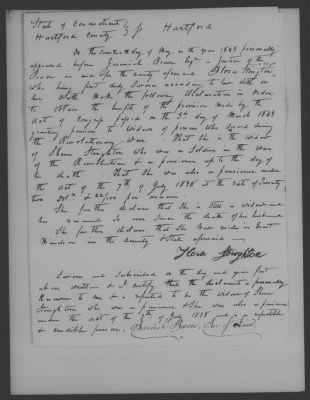 State of Connecticut }
Hartford County } ss Hartford
On the Seventeenth day of May in the year 1843 personally
appeared before Jeremiah Brown Esqr a Justice of the
Peace in and for the county aforesaid Flora Stoughton
who being first duly Sworn according to law doth on
her Oath Make the following Declaration in Order
to Obtain the benefit of the provision made by the
Act of Congress passed on the 3rd day of March 1843
granting pensions to Widows of persons who Served during
the Revolutionary War. That She is the Widow
of Stoughton who was a Soldier in the War
of the Revolution & a pensioner up to the day of
his death That She was also a pensioner under
the Act of the 7th of July 1838 at the rate of Seventy
two Doll's & 22/100 per annum.
She further declares that She is Still a Widow and
has remained So ever Since the death of her husband
She further declares that She Now resides in East
Windsor in the County & State aforesaid
Flora Stoughton
Sworn and Subscribed on the day and year first
above written & I certify that the declarant is personally
known to me & is reputed to be the Widow of
Stoughton who was a pensioner & She was also a pensioner
under the act of the 7th of July 1838 and is a reputable
& credible person. Jeremiah Brown, Jus of Peace